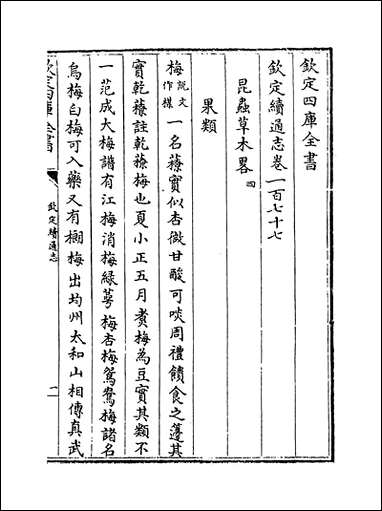 欽定四庫全書
欽定續通志卷一百七十七
昆蟲草木畧四
果類
梅說文作楳一名䕩實似杏微甘酸可啖周禮饋食之籩其
實乾䕩註乾䕩梅也夏小正五月煑梅為豆實其類不
一范成大梅譜有江梅消梅緑萼梅杏梅鴛鴦梅諸名
烏梅白梅可入藥又有榔梅出均州太和山相傳真武
欽定四庫全書
欽定續通志
一